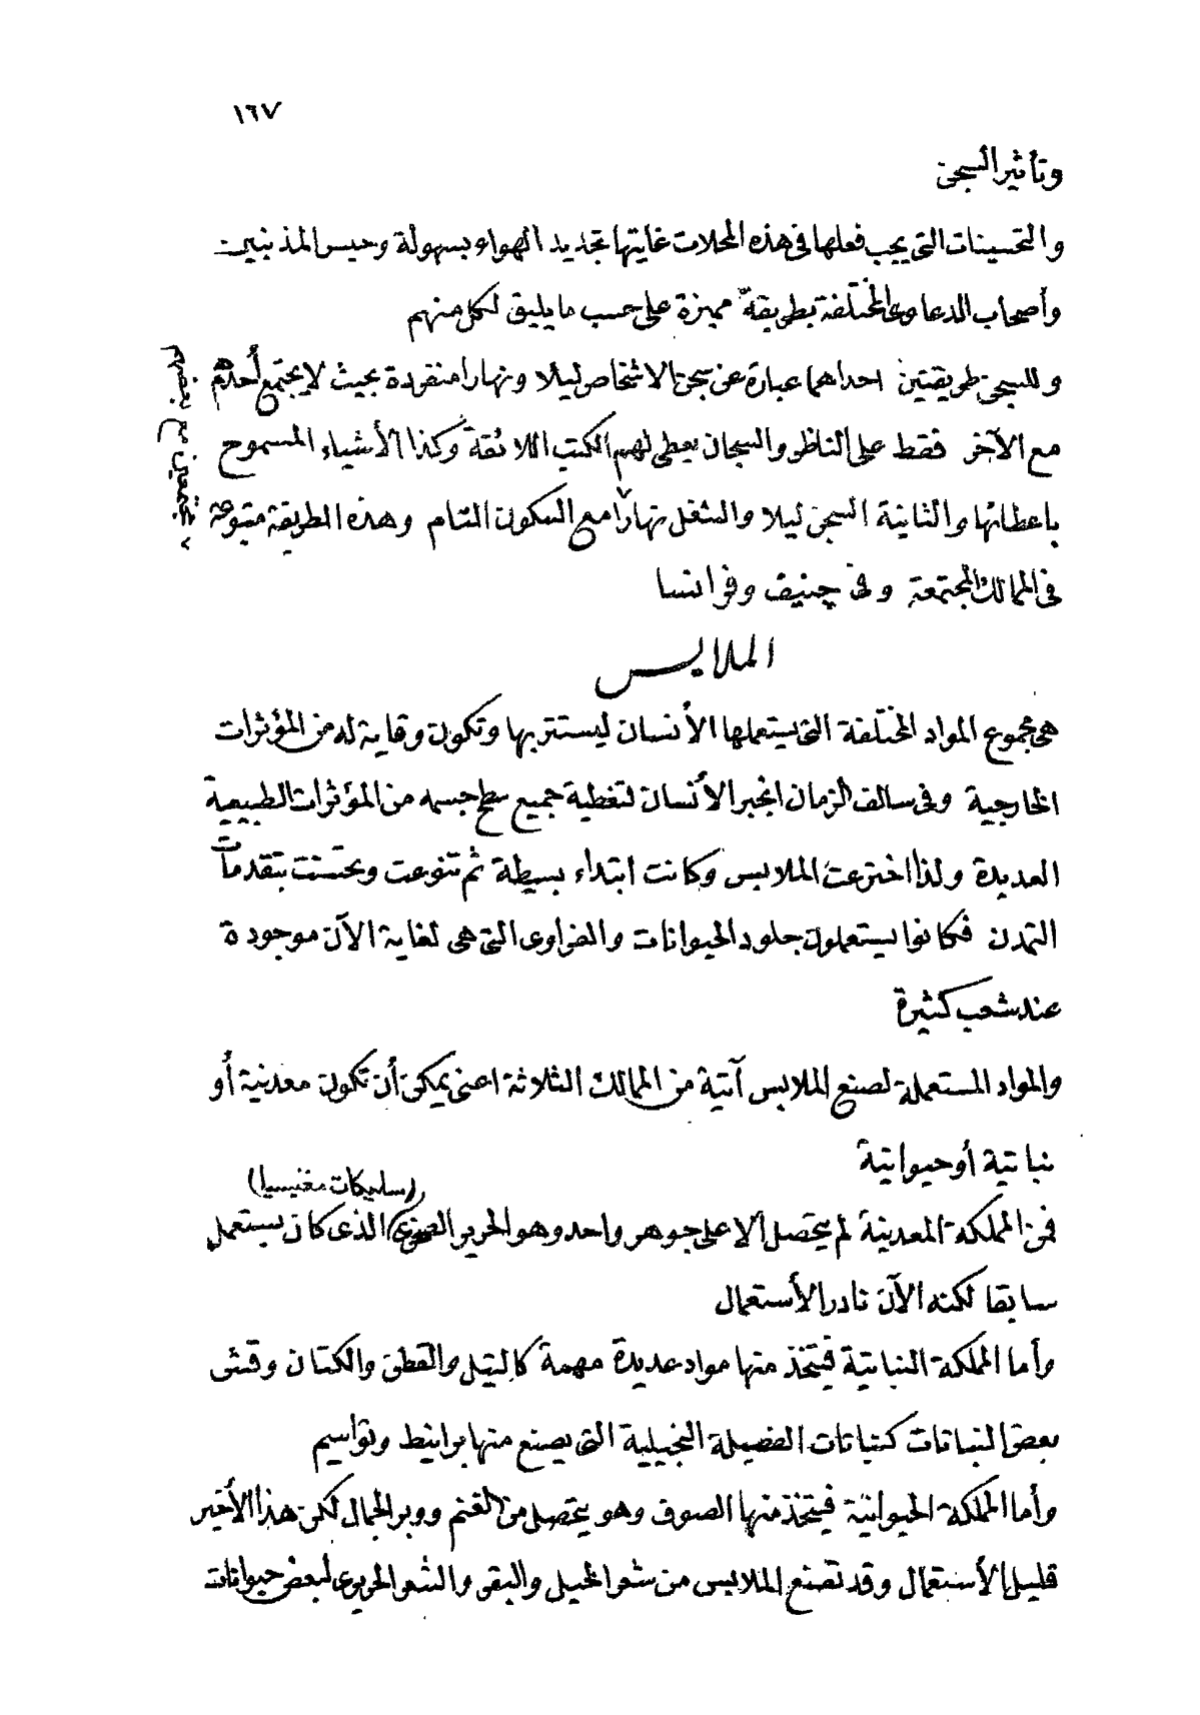 ١٦٧
وتأثير السجن
والتحسينات التى يجب فعلها فى هذه المحلات غايتها تجديد الهواء بسهولة وحبس المذنبين
وأصحاب الدعاوى المختلفة بطريقة مميزة على حسب ما يليق لكل منهم
وللسجن طريقتين احداهما عبارة عن سجن الاشخاص ليلا ونهارا منفردة بحيث لا يجتمع أحدهم
مع الآخر فقط على الناظر والسجان يعطى لهم الكتب اللائقة وكذا الأشياء المسموح
باعطائها والثانية السجن ليلا والشغل نهارا مع السكون التام وهذه الطريقة متبوعة
٧ مجتمعين مع بعضهم
فى الممالك المجتمعة وفى چنيف وفرانسا
الملابس
هى مجموع المواد المختلفة التى يستعملها الأنسان ليستتر بها وتكون وقاية له من المؤثرات
الخارجية وفى سالف الزمان انجبر الأنسان لتغطية جميع سطح جسمه من المؤثرات الطبيعية
العديدة ولذا اخترعت الملابس وكانت ابتداء بسيطة ثم تنوعت وتحسنت بتقدمات
التمدن فكانوا يستعملون جلود الحيوانات والفراوى التى هى لغاية الآن موجودة
عند شعب كثيرة
والمواد المستعملة لصنع الملابس آتية من الممالك الثلاثة اعنى يمكن أن تكون معدنية أو
نباتية أو حيوانية
(سليكات مغنيسيا)
فمن المملكة المعدنية لم يتحصل الا على جوهر واحد وهو الحرير الصخرى الذى كان يستعمل
سابقا لكنه الآن نادر الأستعمال
وأما المملكة النباتية فيتخذ منها مواد عديدة مهمة كالتيل والقطن والكتان وقش
بعض النباتات كنباتات الفصيلة النجيلية التى يصنع منها برانيط وتواسيم
وأما المملكة الحيوانية فيتخذ منها الصوف وهو يتحصل من الغنم ووبر الجمال لكن هذا الأخير
قليل الأستعمال وقد تصنع الملابس من شعر الخيل والبقر والشعر الحريرى لبعض حيوانات